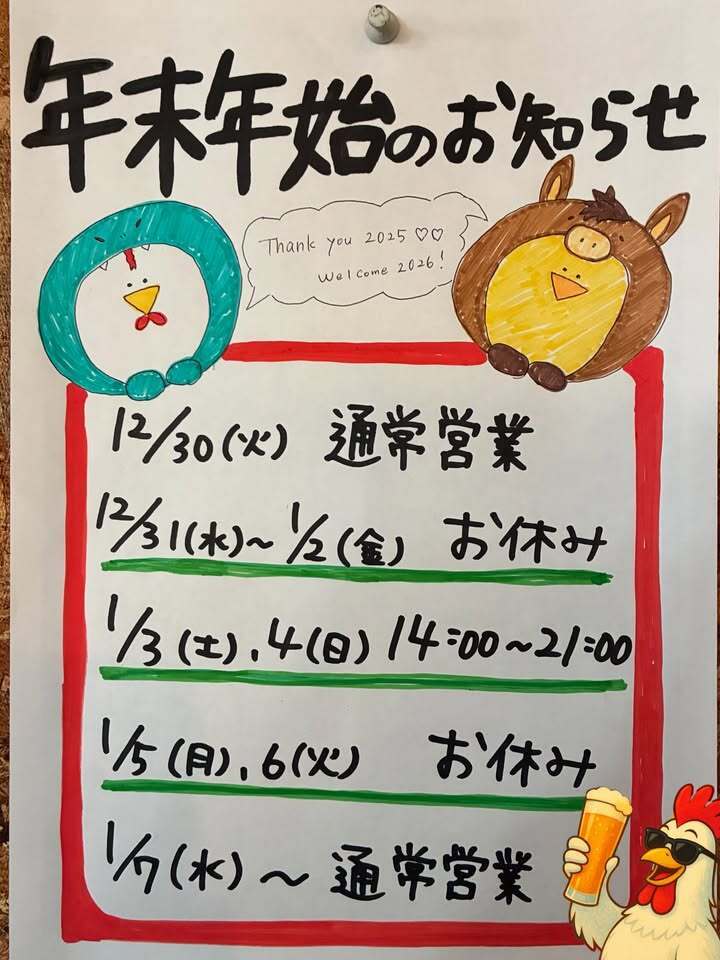 年末年始のお知らせ
Thank you 2025 ♡♡
Welcome 2026!
12/30(火) 通常営業
12/31(水)~1/2(金) お休み
1/3(土).4(日) 14:00~21:00
1/5(月).6(火) お休み
1/7(水)~ 通常営業